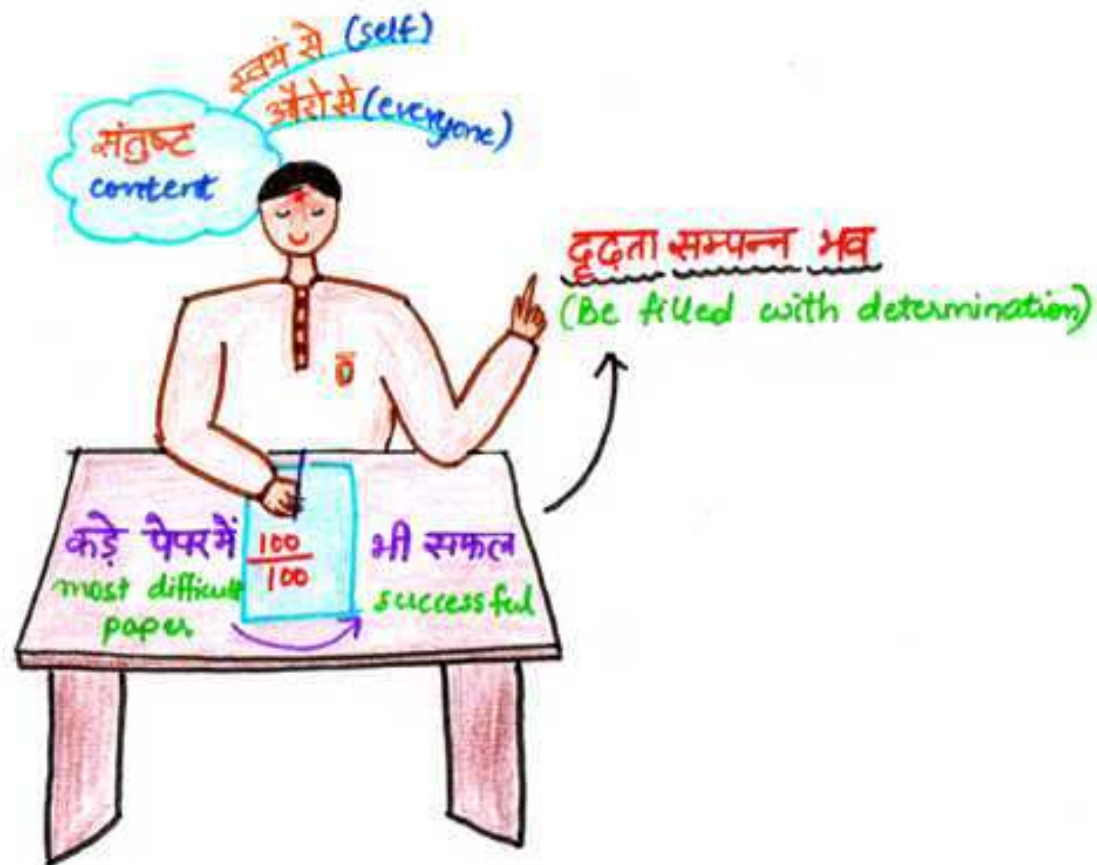 स्वयं से (self)
औरो से (everyone)
संतुष्ट
content
दृढ़ता सम्पन्न भव
(Be filled with determination)
कड़े पेपर में 100/100 भी सफल
most difficult paper successful